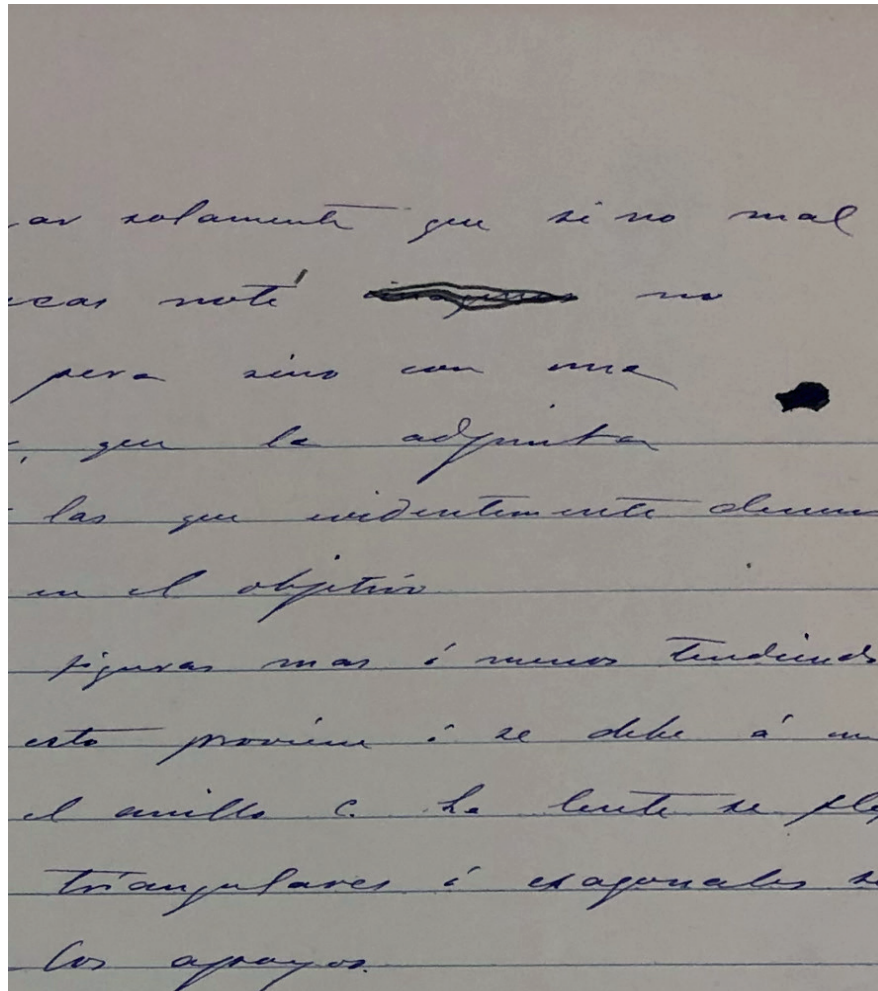 ar solamente que si no mal
cas noté no
pera sino con una
que la adjunta
las que evidentemente
en el objetivo
figuras mas ó menos tendiendo
esto proviene ó se debe á un
el anillo C. La lente se fle
triangulares ó exagonales se
los apoyos.